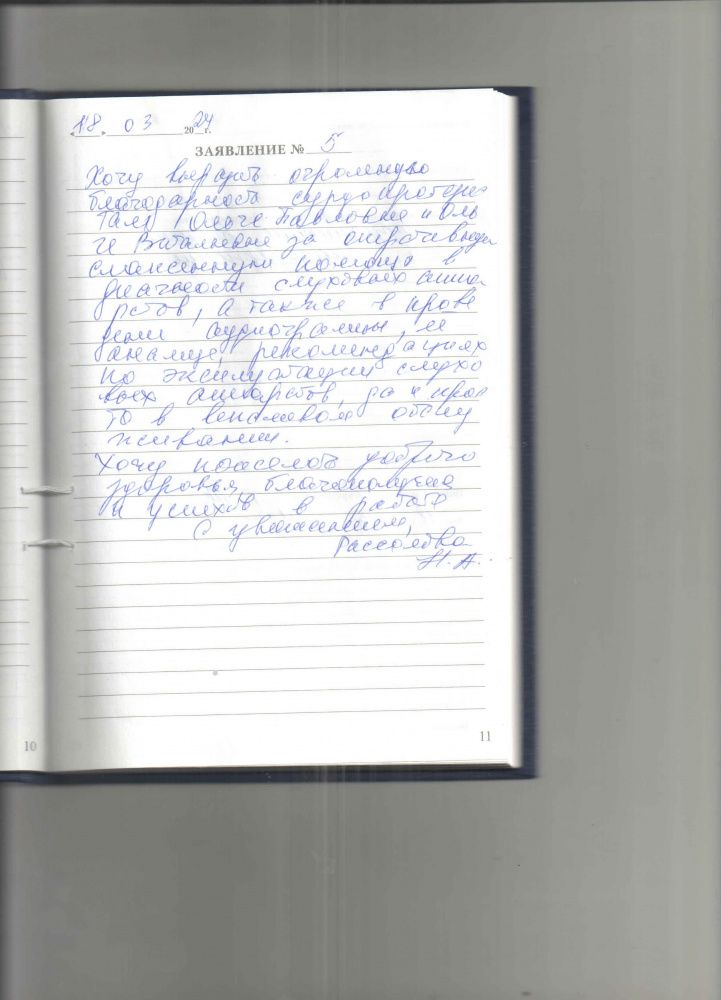 «18» 03 2024 г.
ЗАЯВЛЕНИЕ № 5
Хочу выразить огромную
благодарность сурдопротезис
там Ольге Павловне и Оль
ге Витальевне за оперативную
слаженную помощь в
диагностике слуховых аппа
ратов, а также в прове
дении аудиограммы, ее
анализе, рекомендациях
по эксплуатации слухо
вых аппаратов, да и прос
то в вежливом обслу
живании.
Хочу пожелать доброго
здоровья, благополучия
и успехов в работе
С уважением,
Н.А.
10
11